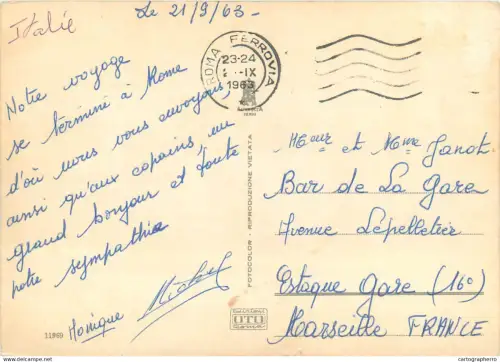 Italie
Le 21/9/63-
ROMA FERROVIA
23-24
-IX
1963
Notre voyage
se termine à Rome
d'où nous vous envoyons
ainsi qu'aux copains un
grand bonjour et toute
notre sympathie
Monique Michel
11969
FOTOCOLOR - RIPRODUZIONE VIETATA
OTO
Mceur et Mme Janot
Bar de La Gare
Avenue Lepelletier
Estaque Gare (16°)
Marseille FRANCE